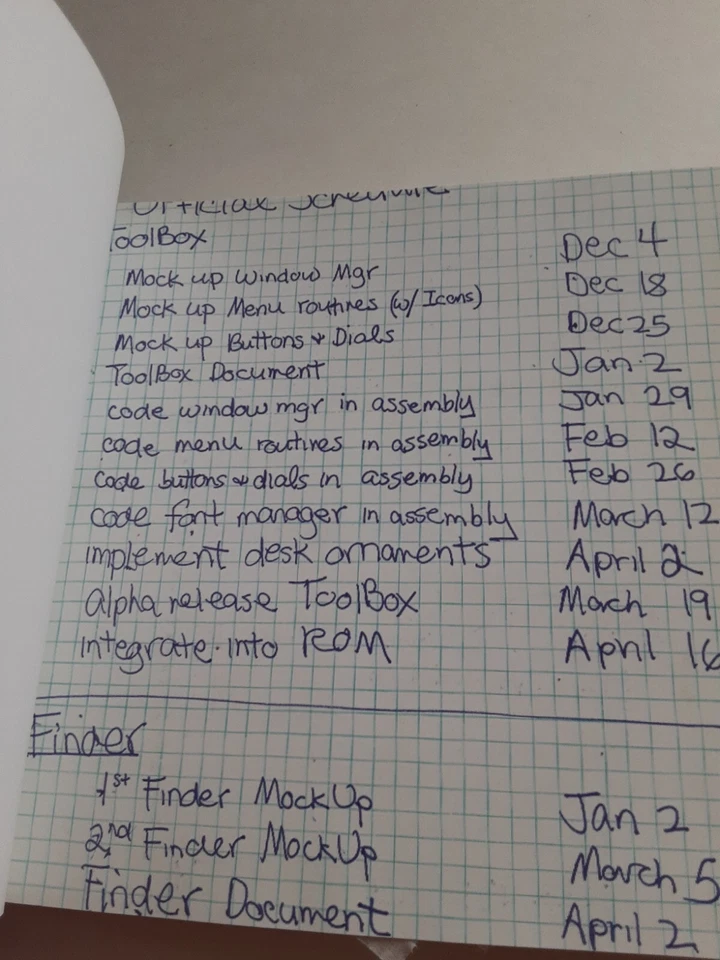 Official Schedule
ToolBox
Mock up Window Mgr Dec 4
Mock up Menu routines (w/ Icons) Dec 18
Mock up Buttons & Dials Dec 25
ToolBox Document Jan 2
code window mgr in assembly Jan 29
code menu routines in assembly Feb 12
code buttons & dials in assembly Feb 26
code font manager in assembly March 12
implement desk ornaments April 2
alpha release ToolBox March 19
integrate into ROM April 16
Finder
1st Finder MockUp Jan 2
2nd Finder MockUp March 5
Finder Document April 2